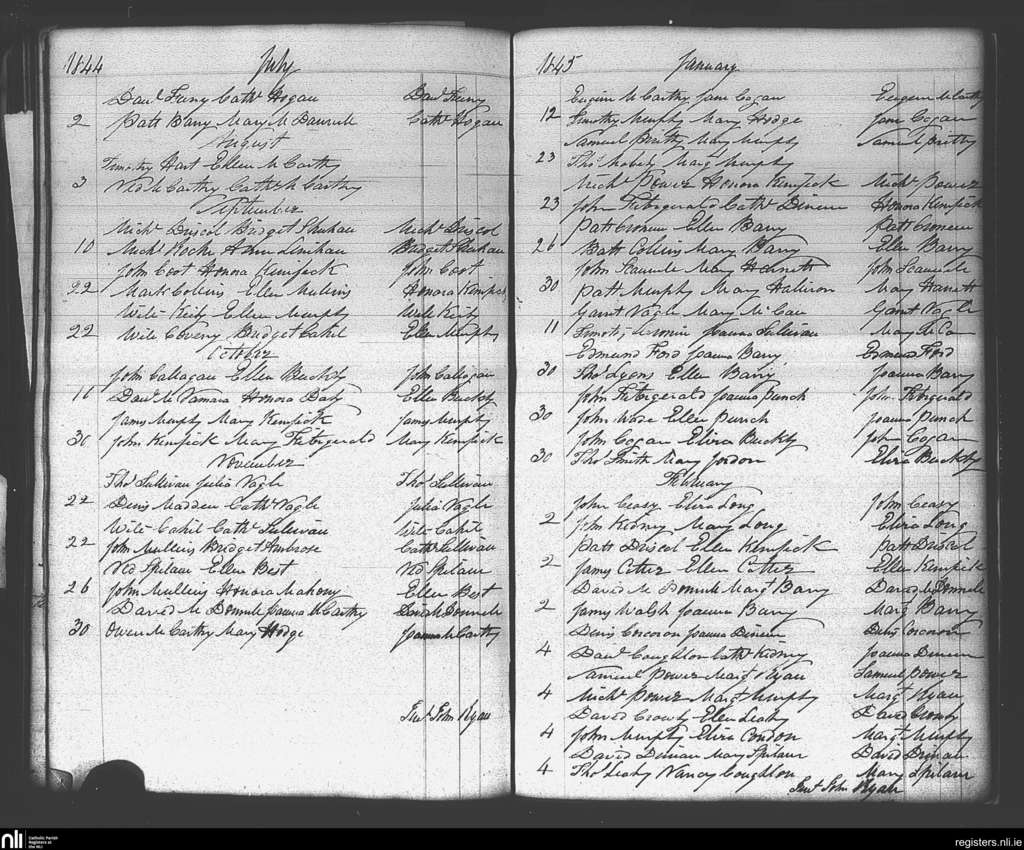 1844 July
Danl Feeny Cathe Hogan Danl Feeny
2 Patt Barry Mary McDannell Cathe Hogan
August
Timothy Hart Ellen McCarthy
3 Ned McCarthy Cathe McCarthy
September
Michl Driscol Bridget Shehan Michl Driscol
10 Michl Roche Ann Linihan Bridget Shehan
John Coot Honora Kempick John Coot
22 Mark Collins Ellen Mullins Honora Kempick
Willm Ellen Murphy Willm
22 Willm Coveny Bridget Cahil Ellen Murphy
October
John Callagan Ellen Buckly John Callagan
16 Danl McNamara Honora Daly Ellen Buckly
Jamy Murphy Mary Kempick Jamy Murphy
30 John Kempick Mary Fitzgerald Mary Kempick
November
Thos Sullivan Julia Nagle Thos Sullivan
22 Denis Madden Cathe Nagle Julia Nagle
Willm Cahil Cathe Sullivan Willm Cahil
22 John Mullins Bridget Ambrose Cathe Sullivan
Ned Spilane Ellen Best Ned Spilane
26 John Mullins Honora Mahony Ellen Best
David McDonnell Joanna McCarthy Donnell
30 Owen McCarthy Mary Hodge Joanna McCarthy
Revd John Ryan
1845 January
Eugene McCarthy Jane Cogan Eugene McCarthy
12 Timothy Murphy Mary Hodge Jane Cogan
Samuel Mary Murphy Samuel
23 Thos Margt Murphy
Michl Power Honora Kempick Michl Power
23 John Fitzgerald Cathe Dineen Honora Kempick
Patt Croneen Ellen Barry Patt Croneen
26 Batt Collins Mary Barry Ellen Barry
John Mary John
30 Patt Murphy Mary Haliran Mary
Garret Nagle Mary McCan Garret Nagle
11 Timothy Joanna Sullivan Mary McCan
Edmund Ford Joanna Barry Edmund Ford
30 Thos Lyons Ellen Barry Joanna Barry
John Fitzgerald Joanna Punch John Fitzgerald
30 John Wade Ellen Punch Joanna Punch
John Cogan Eliza Buckly John Cogan
30 Thos Smith Mary Jordon Eliza Buckly
February
John Ceasy Eliza Long John Ceasy
2 Jon Kedney Mary Long Eliza Long
Patt Driscol Ellen Kempick Patt Driscol
2 Jamy Cotter Ellen Cotter Ellen Kempick
David McDonnell Margt Barry David McDonnell
2 Jamy Walsh Joanna Barry Margt Barry
Denis Corcoron Joanna Dineen Denis Corcoron
4 Danl Coughlon Cathe Kidney Joanna Dineen
Samuel Power Margt Ryan Samuel Power
4 Michl Power Margt Murphy Margt Ryan
David Crowly Ellen Leahy David Crowly
4 John Murphy Eliza Condon Margt Murphy
David Dinean Mary Spilane David Dinean
4 Thos Leahy Nancy Coughlon Mary Spilane
Revd John Ryan
nli Catholic Parish Registers at the NLI
registers.nli.ie